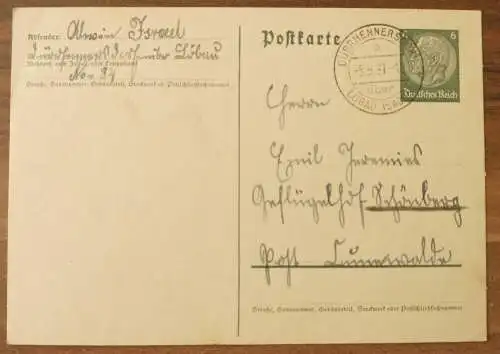 Absender: Alwin Israel
Dürrhennersdorf über Löbau
Wohnort, auch Zustell- oder Leitpostamt
No. 84
Straße, Hausnummer, Gebäudeteil, Stockwerk od. Postschließfachnummer
Postkarte
DÜRRHENNERSDORF
über
LÖBAU (SACHS)
6
Deutsches Reich
Herrn
Emil Jeremies
Geflügelhof Schönberg
Post Cunewalde
Straße, Hausnummer, Gebäudeteil, Stockwerk oder Postschließfachnummer